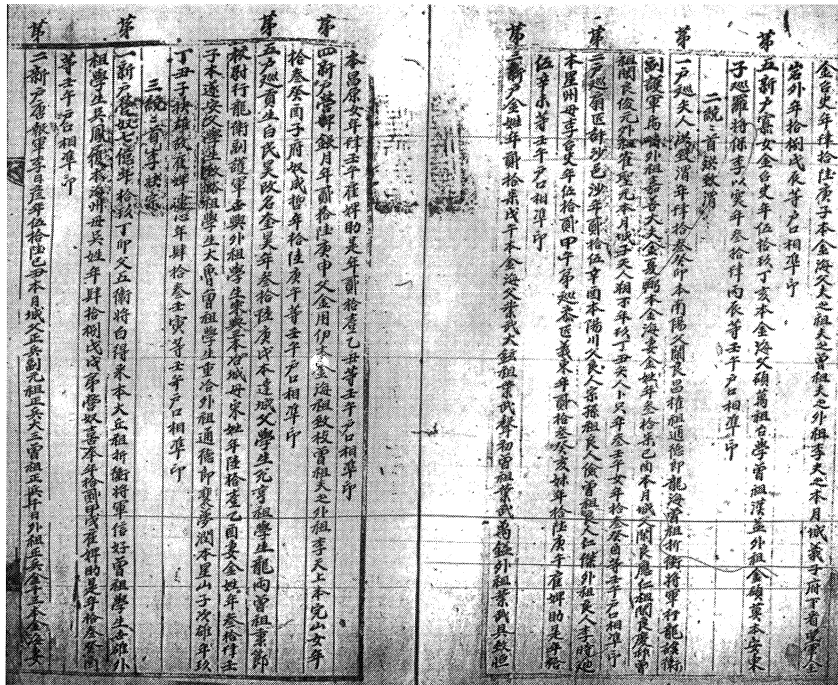 金召史年肆拾陸庚子本金海父夫之祖夫之曾祖夫之外祖李夫之本月城義子府下軍金
岩外年拾捌戊辰等戶口相準印
第五新戶寡女金召史年伍拾玖丁亥本金海父碩萬祖右學曾祖漢益外祖金碩萬本安東
子巡羅將保李以実年叁拾肆丙辰等壬午戶口相準印
二統統首洪致渭
第一戶巡夫人洪致渭年肆拾叁癸卯本南陽父閑良昌權祖通德郎龍海曾祖折衝將軍行龍驤衛
副護軍尚外祖嘉善大夫金夏弼本金海妻金姓年叁拾柒己酉本月城父閑良應仁祖閑良慶邦曾
祖閑良俊元外祖崔聖元本月城年玖丁丑年叁壬午女年拾叁癸酉等壬午戶口相準印
第二戶巡年貳拾伍辛酉本陽川父良人宗孫祖良人儉曾祖良人仁傑外祖良人李
本星州母李召史年伍拾貳甲午弟巡義東年貳拾叁癸亥妹年拾陸庚午雇婢助是年拾
伍辛未等壬午戶口相準印
第三新戶金姓年貳拾柒戊午本金海父業武大鎰祖業武聲初曾祖業武萬鎰外祖業武具致恒
本昌原女年肆壬午雇婢助是年貳拾壹乙丑等壬午戶口相準印
第四新戶學婢銀月年貳拾陸庚申父金用伊本金海祖致枝曾祖夫之外祖李天上本完山女年
拾叁癸酉子府奴成哲年拾陸庚午等壬午戶口相準印
第五戶巡貢生白民吳改名金吳年叁拾陸庚戌本達城父學生允亨祖學生龍雨曾祖秉節
校尉行龍衛副護軍世興外祖學生宋興本冶城母宋姓年陸拾壹乙酉妻金姓年叁拾肆壬
子本遂安父學生致祖學生大曾祖學生重洽外祖通德郎裵夢潤本星山子淳雄年玖
丁丑子扶雄故雇婢心年肆拾叁壬寅等壬午戶口相準印
三統統首李扶
第一新戶營奴七億年拾玖丁卯父丘衝將白得米本大丘祖折衝將軍信好曾祖學生世雄外
祖學生吳鳳儀本海州母吳姓年肆拾捌戊戌弟營奴喜奉年拾貳甲戌雇婢助是年拾叁癸酉
等壬午戶口相準印
第二新戶唐報軍李日年伍拾陸己丑本月城父正兵副元祖正兵大三曾祖正兵千百外祖正兵金士三本金海妻